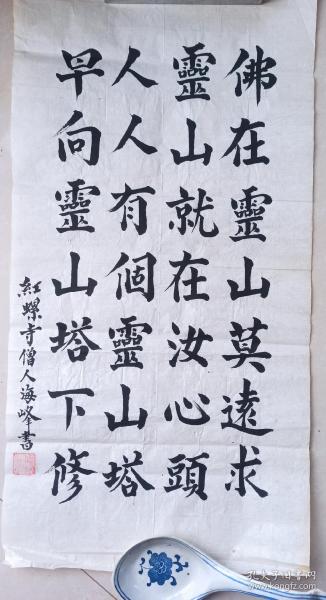 佛在靈山莫遠求
靈山就在汝心頭
人人有個靈山塔
早向靈山塔下修
紅螺寺僧人海峰書
孔夫子旧书网